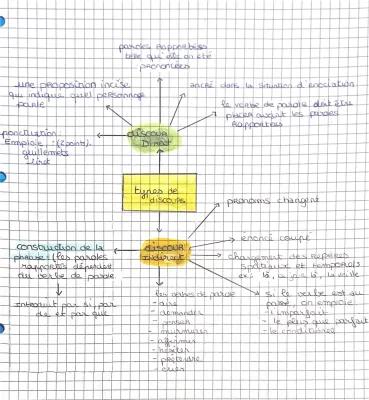 paroles rapportées
telle qu'elle on été
prononcées
une proposition incise
qui indique quel personnage
parle
ancré dans la situation d'enociation
le verbe de parole doit être
placer avant les paroles
rapportées
ponctuation :
Emploie : (2 points).
guillemets
tiret
discour
Direct
types de
discours
pronoms changent
énoncé coupé
discour
indirect
construction de la
phrase : (les paroles
rapportés dépend
du verbe de parole
Changement des repères
spatiaux et temporels
ex : là, la veille
introduit par si par
de et par que
les verbes de parole
- dire
- demander
- penser
- murmurer
- affirmer
- répéter
- prétendre
- crier
si le verbe est au
passé, on emploie
- l'imparfait
- le plus que parfait
- le conditionnel